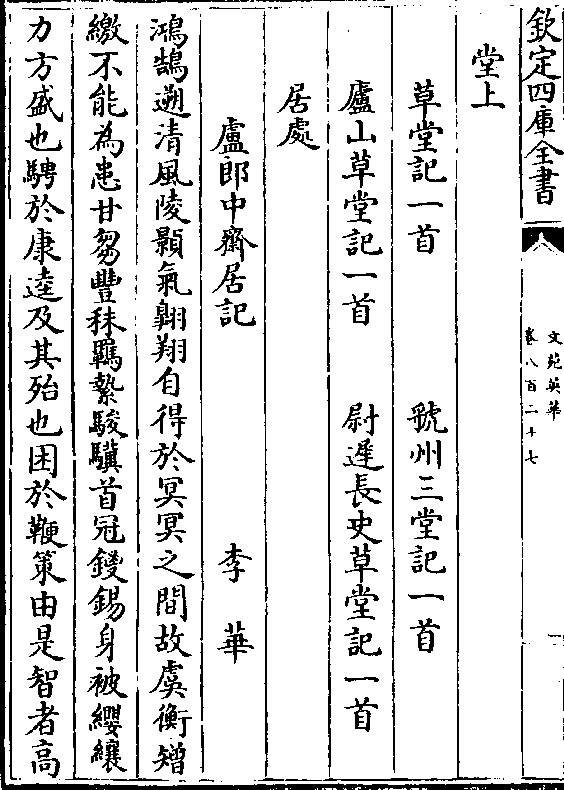 欽定四庫全書
文苑英華
卷八百二十七
堂上
草堂記一首 虢州三堂記一首
廬山草堂記一首 尉遲長史草堂記一首
居處
盧郎中齋居記 李華
鴻鵠遡清風陵顥氣翺翔自得於冥冥之間故虞衡矰
繳不能為患甘芻豐秣羈縶駿驥首冠鍐鍚身被纓纕
力方盛也騁於康逵及其殆也困於鞭策由是智者高